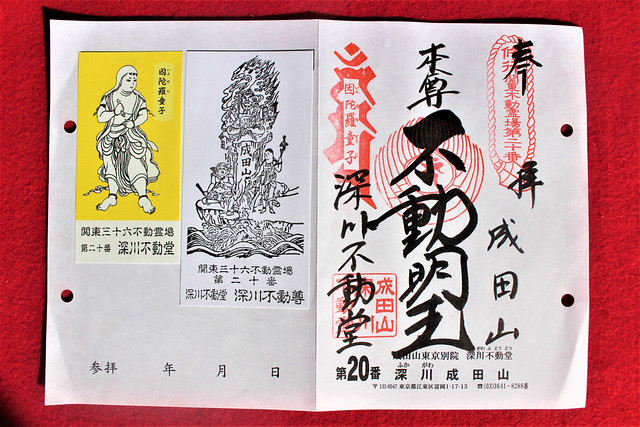 奉拝
成田山
本尊
不動明王
深川不動堂
関東不動霊場第二十番
因陀羅童子
成田山
成田山東京別院 深川不動堂
がわふどうどう
ふかがわ
第20番 深川成田山
〒135-0047 東京都江東区富岡1-17-13 ☎(03)3641-8288番
因陀羅童子
関東三十六不動霊場
第二十番 深川不動堂
成田山
関東三十六不動霊場
第二十番
深川不動堂 深川不動尊
参拝 年 月 日